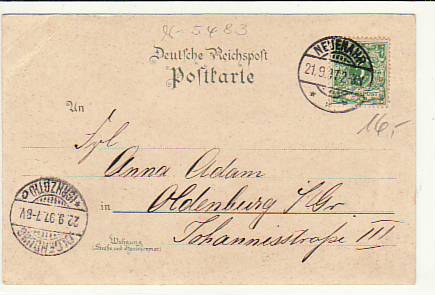 K-5483
Deutsche Reichspost
Postkarte
NEUENAHR
21.9.97.2-3N
An
16,-
Frl
Anna Adam
in Oldenburg i/Gr
OLDENBURG
22.9.97.7-8V
Wohnung
(Straße und Hausnummer)
Johannisstraße III